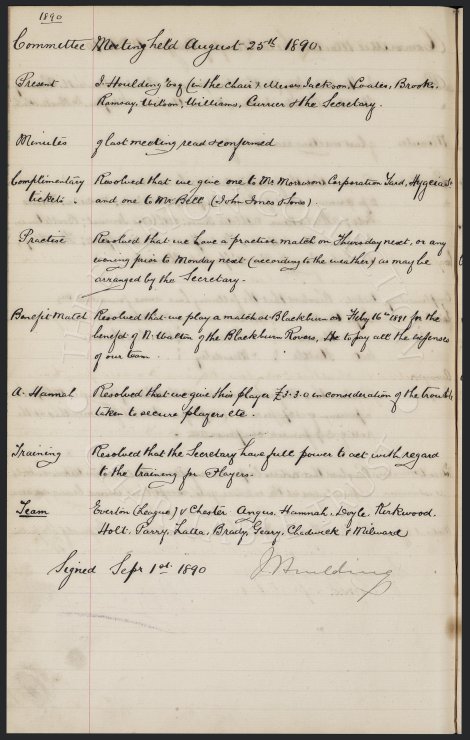 1890
Committee Meeting held August 25th 1890.
Present J Houlding Esq (in the chair) & Messrs Jackson, Coates, Brooks,
Ramsay, Wilson, Williams, Currier & the Secretary.
Minutes of last meeting read & confirmed
Complimentary Resolved that we give one to Mr Morrison Corporation Yard, Hygeia St
tickets. and one to Mr Bell (John Jones & Sons).
Practise Resolved that we have a practise match on Thursday next, or any
evening prior to Monday next (according to the weather) as may be
arranged by the Secretary.
Benefit Match Resolved that we play a match at Blackburn on Feby 16th 1891 for the
benefit of N. Walton of the Blackburn Rovers, He to pay all the expenses
of our team.
A. Hannah Resolved that we give this player £3.3.0 in consideration of the trouble
taken to secure players etc.
Training Resolved that the Secretary have full power to act with regard
to the training for Players.
Team Everton (League) v Chester Angus, Hannah, Doyle, Kirkwood,
Holt, Parry, Latta, Brady, Geary, Chadwick & Milward
Signed Sepr 1st 1890 J Houlding